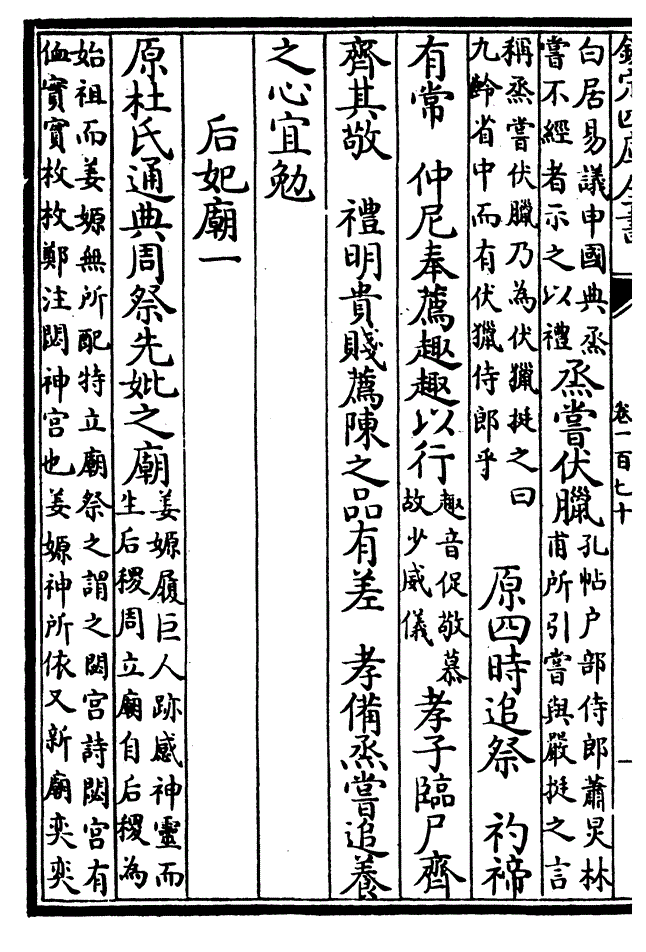 欽定四庫全書
卷一百七十
白居易議申國典烝
嘗不經者示之以禮
烝嘗伏臘
孔帖户部侍郎蕭炅林
甫所引嘗與嚴挺之言
稱烝嘗伏臘乃為伏獵挺之曰
九齡省中而有伏獵侍郎乎
原四時追祭 礿禘
有常 仲尼奉薦趣趣以行
趣音促敬慕
故少威儀
孝子臨尸齊
齊其敬 禮明貴賤薦陳之品有差 孝備烝嘗追養
之心宜勉
后妃廟一
原杜氏通典周祭先妣之廟
姜嫄履巨人跡感神靈而
生后稷周立廟自后稷為
始祖而姜嫄無所配特立廟祭之謂之閟宮詩閟宮有
侐實實枚枚鄭注閟神宮也姜嫄神所依又新廟奕奕